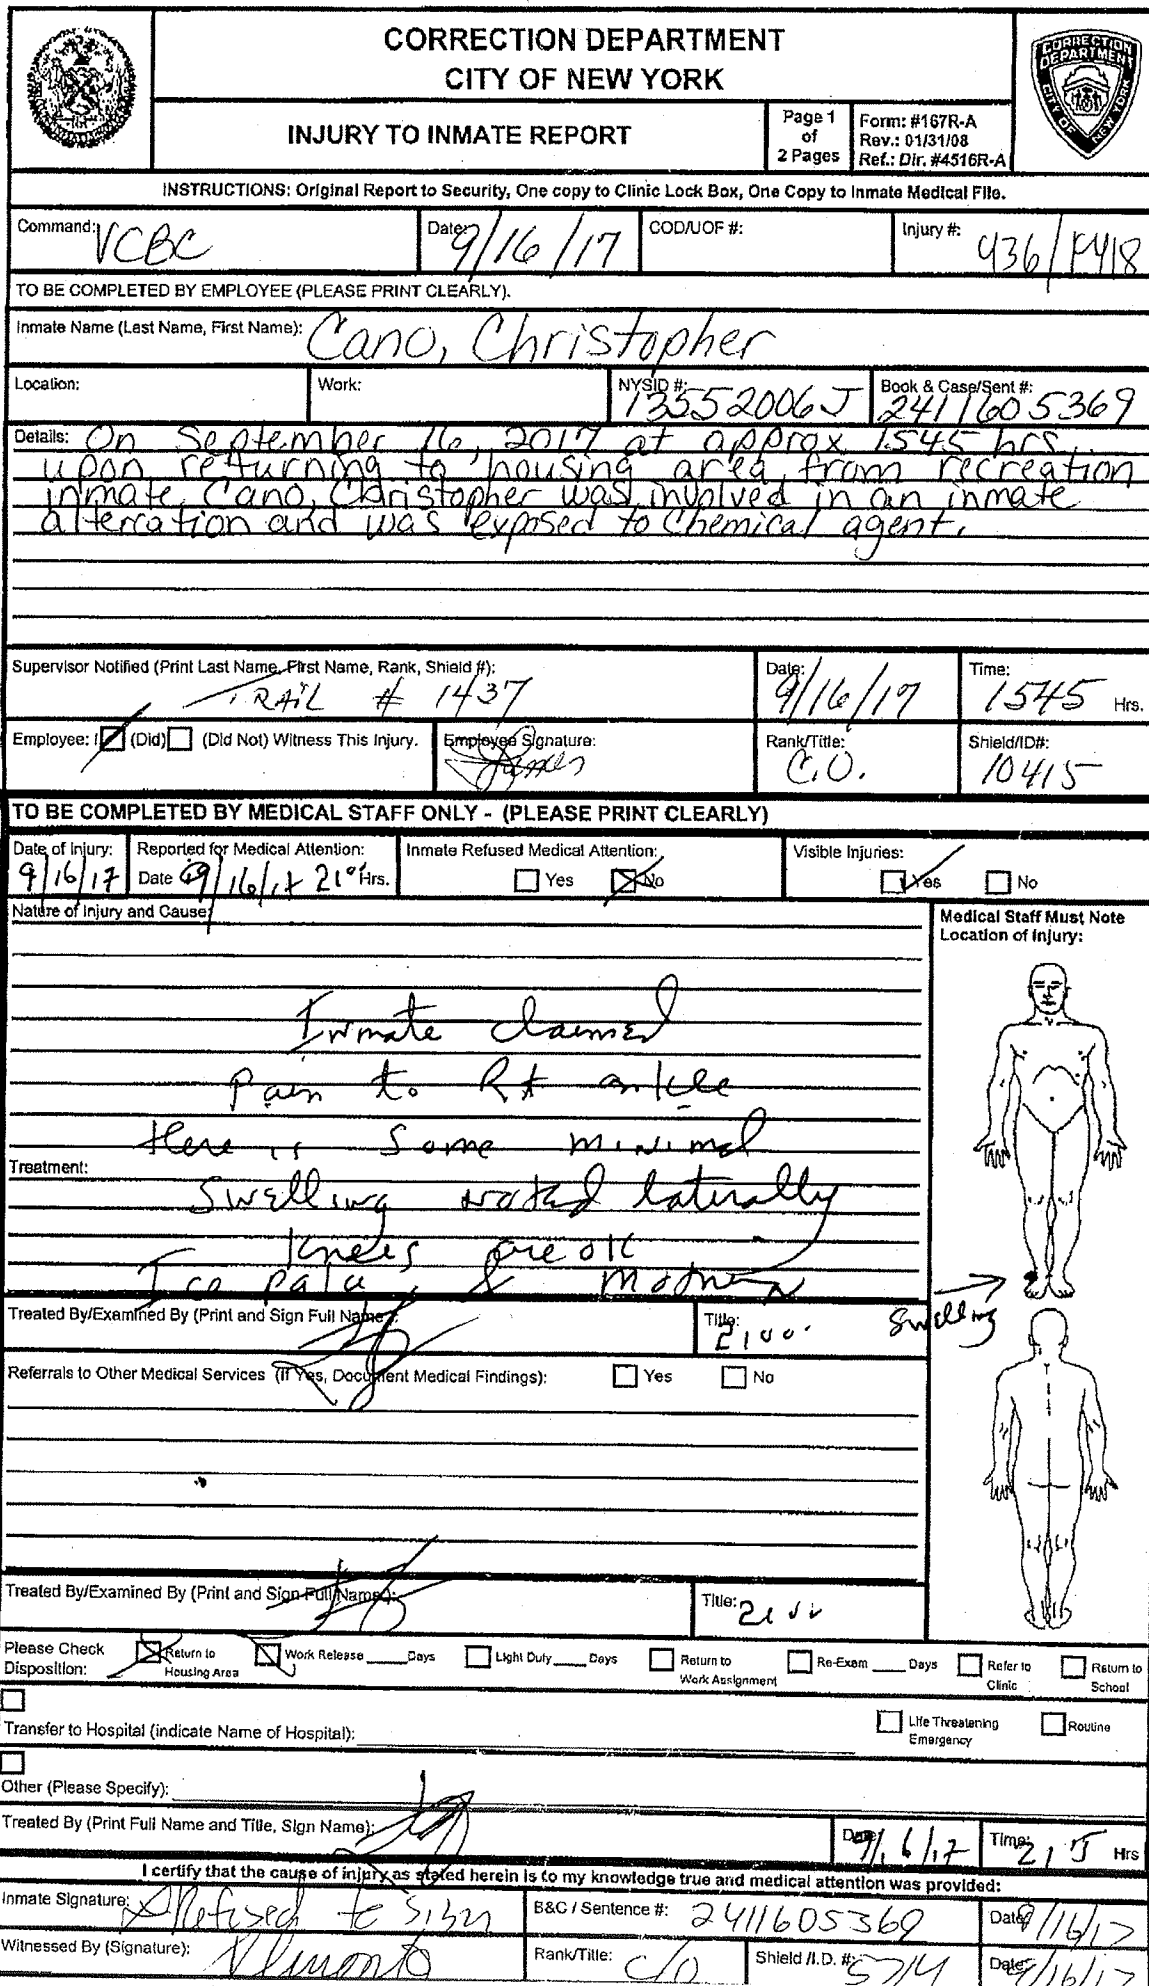 CORRECTION DEPARTMENT
CITY OF NEW YORK
INJURY TO INMATE REPORT
Page 1
of
2 Pages
Form: #167R-A
Rev.: 01/31/08
Ref.: Dir. #4516R-A
CORRECTION
DEPARTMENT
CITY OF NEW YORK
INSTRUCTIONS: Original Report to Security, One copy to Clinic Lock Box, One Copy to Inmate Medical File.
Command: VCBC
Date: 9/16/17
COD/UOF #:
Injury #: 936/
TO BE COMPLETED BY EMPLOYEE (PLEASE PRINT CLEARLY).
Inmate Name (Last Name, First Name): Cano, Christopher
Location:
Work:
NYSID #: 13552006J
Book & Case/Sent #: 2411605369
Details: On September 16, 2017 at approx 1545 hrs
upon returning to housing area from recreation
inmate Cano, Christopher was involved in an inmate
altercation and was exposed to Chemical agent.
Supervisor Notified (Print Last Name, First Name, Rank, Shield #):
TRAIL # 1437
Date: 9/16/17
Time: 1545 Hrs.
Employee: I (Did) (Did Not) Witness This Injury.
Employee Signature: James
Rank/Title: C.O.
Shield/ID#: 10415
TO BE COMPLETED BY MEDICAL STAFF ONLY - (PLEASE PRINT CLEARLY)
Date of Injury: 9/16/17
Reported for Medical Attention:
Date 09/16/17 21 Hrs.
Inmate Refused Medical Attention:
Yes No
Visible Injuries:
Yes No
Nature of Injury and Cause:
Medical Staff Must Note
Location of Injury:
Inmate claimed
Pain to Rt ankle
there is some minimal
Treatment:
swelling noted laterally
knees are ok
Ice & Motrin
swelling
Treated By/Examined By (Print and Sign Full Name):
Title: 2100
Referrals to Other Medical Services (If Yes, Document Medical Findings): Yes No
Treated By/Examined By (Print and Sign Full Name):
Title:
Please Check
Disposition:
Return to
Housing Area
Work Release ____ Days
Light Duty ____ Days
Return to
Work Assignment
Re-Exam ____ Days
Refer to
Clinic
Return to
School
Transfer to Hospital (indicate Name of Hospital):
Life Threatening
Emergency
Routine
Other (Please Specify):
Treated By (Print Full Name and Title, Sign Name):
Date: 9/16/17
Time: Hrs
I certify that the cause of injury as stated herein is to my knowledge true and medical attention was provided:
Inmate Signature: Refused to sign
B&C / Sentence #: 2411605369
Date: 9/16/17
Witnessed By (Signature):
Rank/Title: C/O
Shield /I.D. #: 5714
Date: 9/16/17